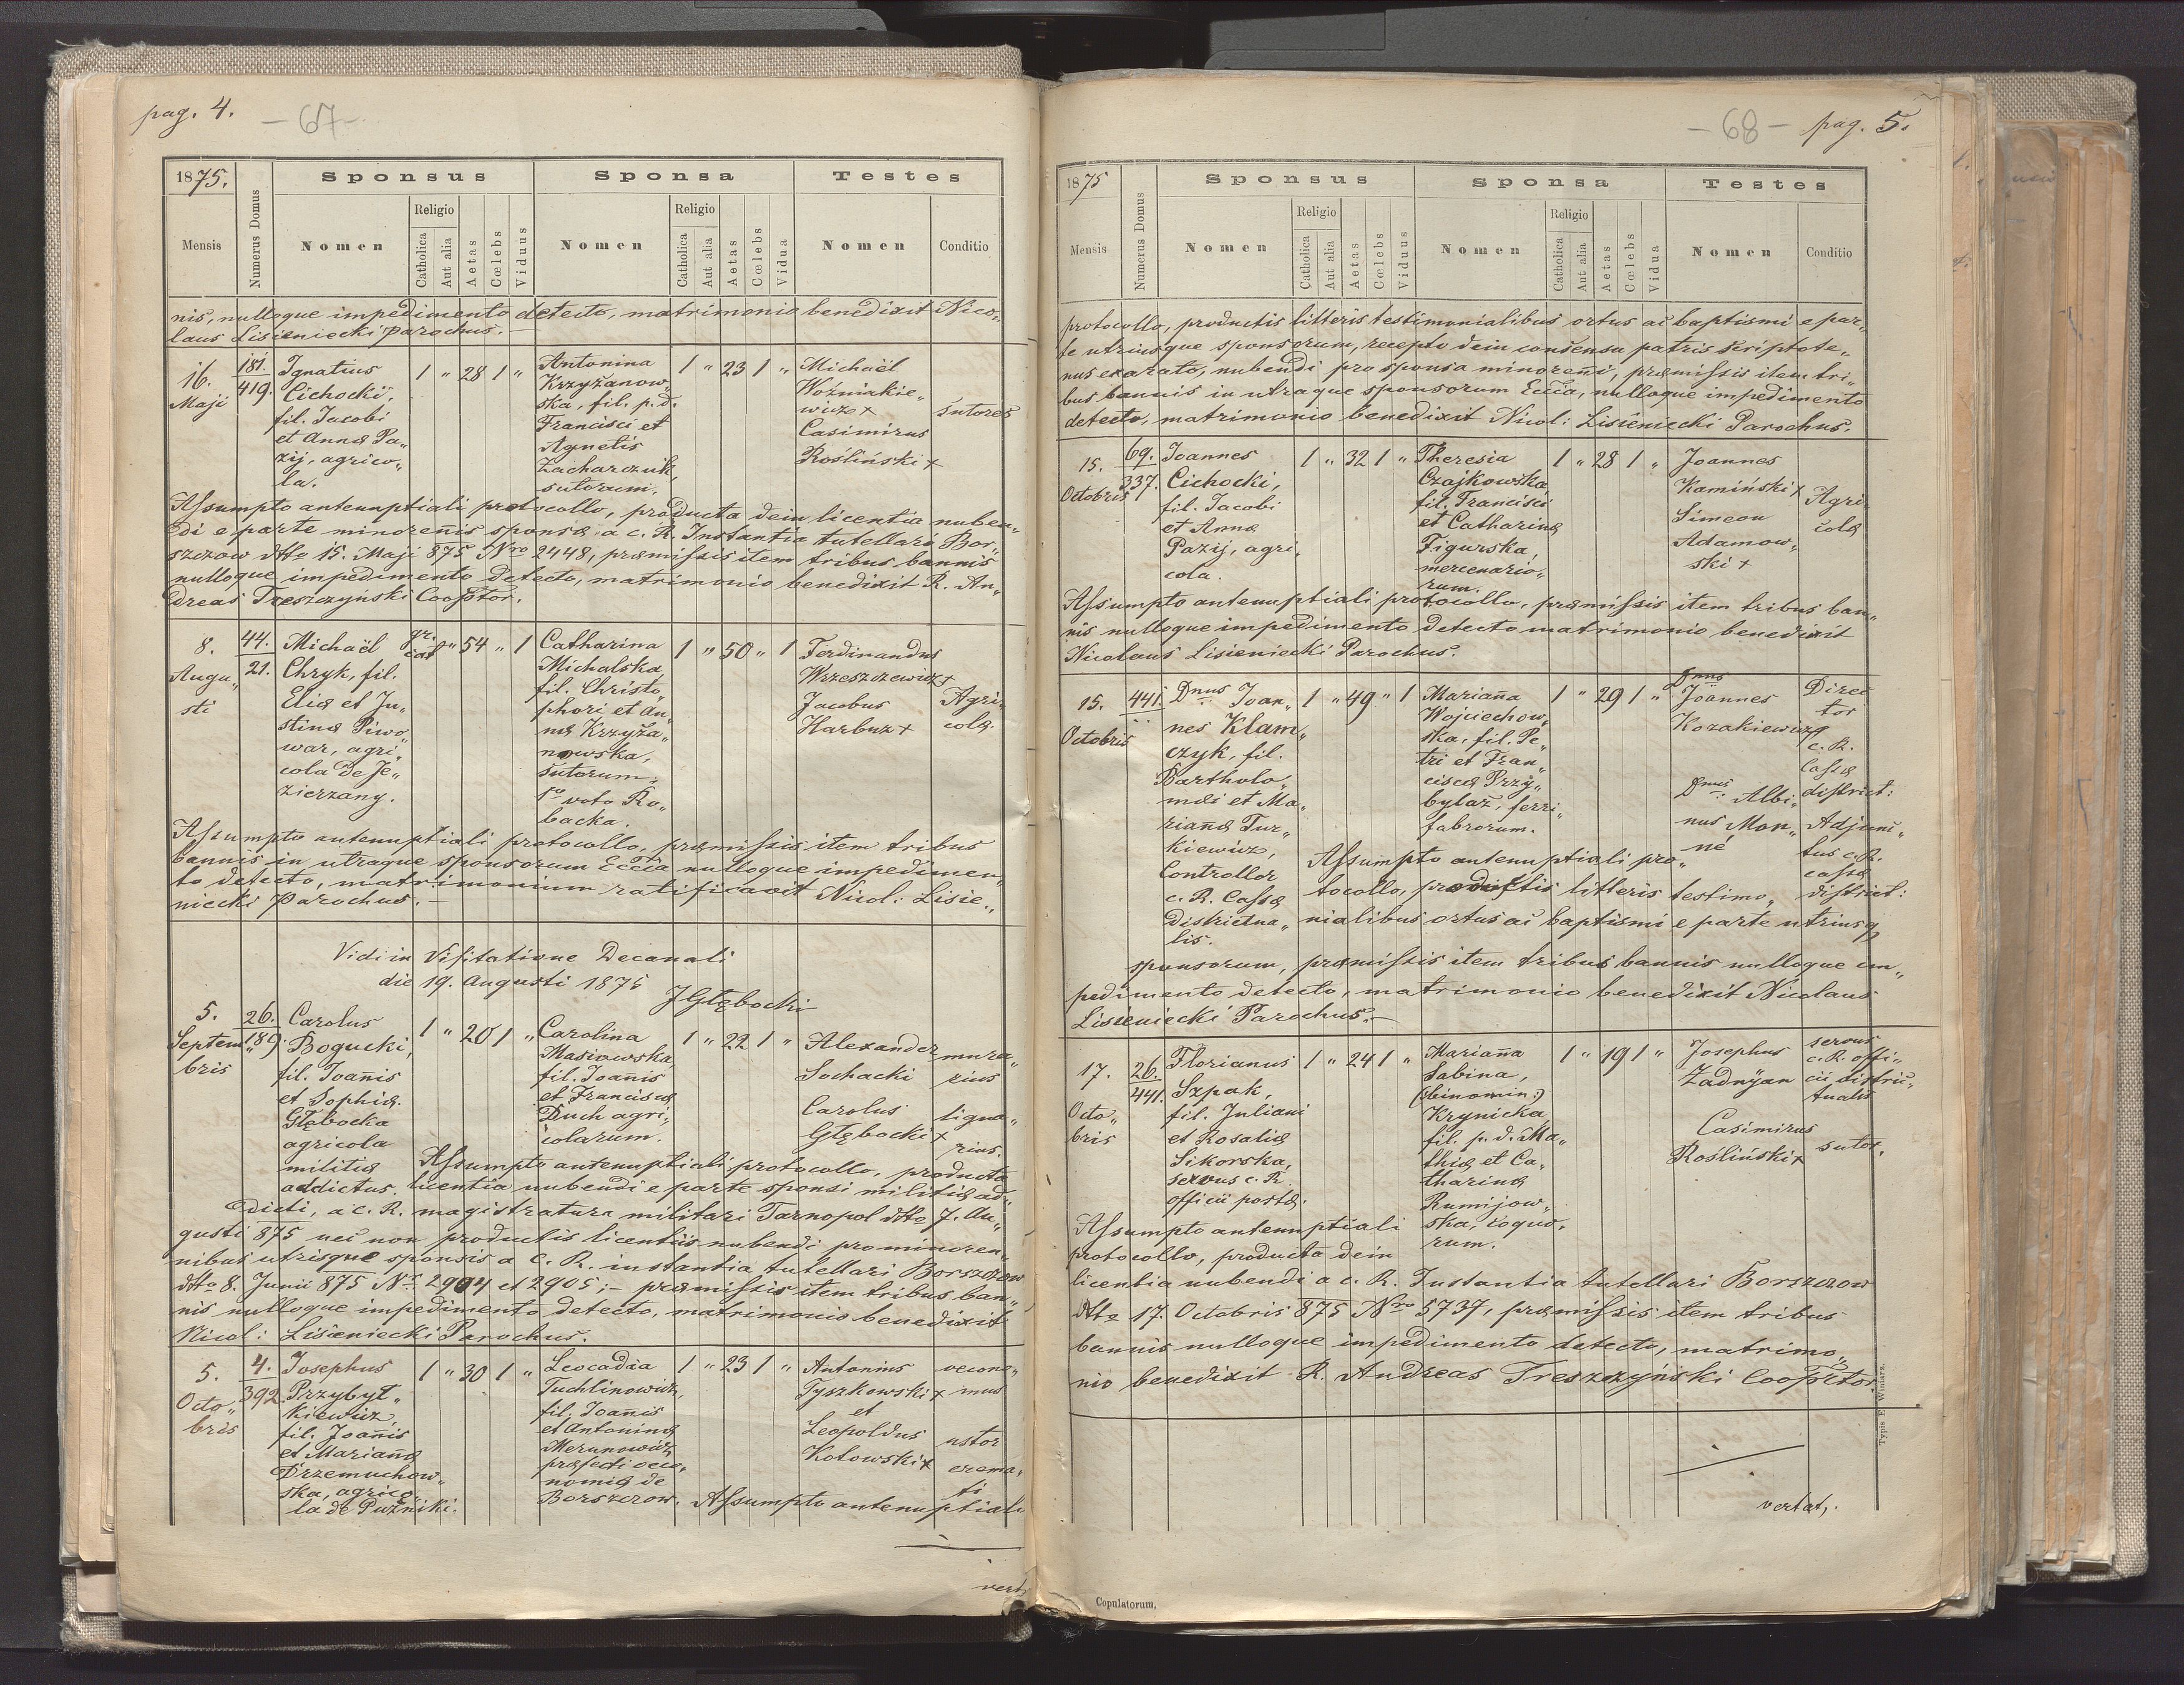 pag. 4.
- 67 -
1875.
Mensis
Numerus Domus
Sponsus
Nomen
Religio
Catholica
Aut alia
Aetas
Cœlebs
Viduus
Sponsa
Nomen
Religio
Catholica
Aut alia
Aetas
Cœlebs
Vidua
Testes
Nomen
Conditio
nis, nulloque impedimento detecto, matrimonio benedixit Nico„
laus Lisieniecki Parochus.
16.
Maji
181.
419.
Ignatius
Cichocki,
fil. Jacobi
et Annæ Pa„
zij, agrico„
la.
1 „ 28 1 „
Antonina
Krzyżanow„
ska, fil. p. d.
Francisci et
Agnetis
Zacharczuk,
sutorum.
1 „ 23 1 „
Michaël
Woźniakie„
wicz +
Casimirus
Rośliński +
sutores
Assumpto antenuptiali protocollo, producta dein licentia nuben„
di e parte minoreñis sponsæ a c. R. Instantia tutellari Bor„
szczow dtto 15. Maji 875 Nro 2448, præmissis item tribus bannis
nulloque impedimento detecto, matrimonio benedixit R. An„
dreas Treszczyński Cooptor.
8.
Augu„
sti
44.
21.
Michaël
Chryk, fil.
Eliæ et Ju„
stinæ Piwo„
war, agri„
cola de Je„
zierzany.
gr.
cat „ 54 „ 1
Catharina
Michalska
fil. Christo„
phori et An„
næ Krzyża„
nowska,
sutorum,
1o voto Ro„
backa.
1 „ 50 „ 1
Ferdinandus
Wrzeszczewicz +
Jacobus
Harbuz +
Agri„
colæ
Assumpto antenuptiali protocollo, præmissis item tribus
bannis in utraque sponsorum Eccľa nulloque impedimen„
to detecto, matrimonium ratificavit Nicol: Lisie„
niecki Parochus. -
Vidi in Visitatione Decanali
die 19. Augusti 1875
JGłębocki
5.
Septem„
bris
26.
189.
Carolus
Bogucki,
fil. Joañis
et Sophiæ
Głębocka
agricola
militiæ
addictus.
1 „ 20 1 „
Carolina
Masiowska,
fil. Joañis
et Franciscæ
Duch agri„
colarum.
1 „ 22 1 „
Alexander
Sochacki
Carolus
Głębocki +
mura„
rius
ligna„
rius.
Assumpto antenuptiali protocollo, producta
licentia nubendi e parte sponsi militiæ ad„
dicti, a c. R. magistratura militari Tarnopol dtto 7. Au„
gusti 875 nec non productis licentiis nubendi pro minoren„
nibus utrisque sponsis a c. R. instantia tutellari Borszczow
dtto 8. Junii 875 Nr. 2904 et 2905; - præmissis item tribus ban„
nis nulloque impedimento detecto, matrimonio benedixit
Nicol: Lisieniecki Parochus.
5.
Octo„
bris
4.
392
Josephus
Przybyt„
kiewicz,
fil. Joañis
et Mariañæ
Drzemuchow„
ska, agrico„
la de Pużniki.
1 „ 30 1 „
Leocadia
Tuchlinowicz,
fil. Joañis
et Antoninæ
Merunowicz,
præfecti oeco„
nomiæ de
Borszczow.
1 „ 23 1 „
Antonius
Tyszkowski +
et
Leopoldus
Kotowski +
oecono„
mus
ustor
crema„
ti
Assumpto antenuptiali
- 68 -
pag. 5.
1875
Mensis
Numerus Domus
Sponsus
Nomen
Religio
Catholica
Aut alia
Aetas
Cœlebs
Viduus
Sponsa
Nomen
Religio
Catholica
Aut alia
Aetas
Cœlebs
Vidua
Testes
Nomen
Conditio
protocollo, productis litteris testimonialibus ortus ac baptismi e par„
te utriusque sponsorum, recepto dein consensu patris scriptote„
nus exarato, nubendi pro sponsa minoreñi, præmissis item tri„
bus bannis in utraque sponsorum Eccľa, nulloque impedimento
detecto, matrimonio benedixit Nicol: Lisieniecki Parochus.
15.
Octobris
69.
337.
Joannes
Cichocki,
fil. Jacobi
et Annæ
Pazij, agri„
cola.
1 „ 32 1 „
Theresia
Czajkowska
fil. Francisci
et Catharinæ
Figurska,
mercenario„
rum.
1 „ 28 1 „
Joannes
Kamiński +
Simeon
Adamow„
ski +
Agri„
colæ
Assumpto antenuptiali protocollo, præmissis item tribus ban„
nis nulloque impedimento detecto matrimonio benedixit
Nicolaus Lisieniecki Parochus.
15.
Octobris
441.
Dnus Joan„
nes Klam„
czyk, fil.
Bartholo„
mæi et Ma„
riañæ Tur„
kiewicz,
Controllor
c. R. Cassæ
districtua„
lis.
1 „ 49 „ 1
Mariaña
Wojciechow„
ska, fil. Pe„
tri et Fran„
ciscæ Przy„
bylaz, ferri„
fabrorum.
1 „ 29 1 „
Dnus
Joannes
Kozakiewicz
Dnus Albi„
nus Mon„
né
Direc
tor
c. R.
Cassæ
district:
Adjunc„
tus c. R.
cassæ
district:
Assumpto antenuptiali pro„
tocollo, productis litteris testimo„
nialibus ortus ac baptismi e parte utriusq
sponsorum, præmissis item tribus bannis nulloque im„
pedimento detecto, matrimonio benedixit Nicolaus
Lisieniecki Parochus. -
17.
Octo„
bris
26.
441.
Florianus
Szpak,
fil. Juliani
et Rosaliæ
Sikorska,
servus c. R.
officii postæ.
1 „ 24 1 „
Mariaña
Sabina,
(binomin:)
Krynicka
fil. p. d. Ma„
thiæ et Ca„
tharinæ
Rumijow„
ska, coquo„
rum.
1 „ 19 1 „
Josephus
Zadnÿan
Casimirus
Rośliński +
servus
c. R. offi„
cii distric„
tualis
sutor.
Assumpto antenuptiali
protocollo, producta dein
licentia nubendi a c. R. Instantia tutellari Borszczow
dtto 17. Octobris 875 Nro 5737, præmissis item tribus
bannis nulloque impedimento detecto, matrimo„
nio benedixit R. Andreas Treszczyński Cooptor.
Typis E. Winiarz.
vertat,.
Copulatorum.